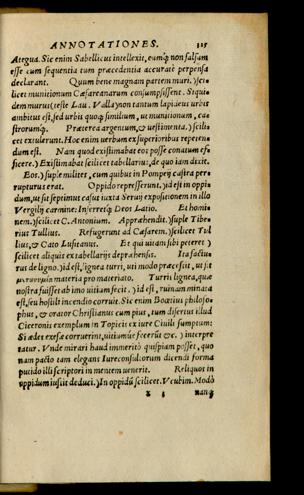 ANNOTATIONES. 325
Ategua. Sic enim Sabellicus intellexit, eamq́; non falsam
esse cum sequentia tum præcedentia accuratè perpensa
declarant. Quum bene magnam partem muri.) sci-
licet munitionum Cæsareanarum consumpsissent. Siqui-
dem murus (teste Lau. Valla) non tantum lapideus urbis
ambitus est, sed urbis quoq; similium, ut munitionum, ca-
strorumq́;. Præterea argentum, & uestimenta.) scili-
cet extulerunt. Hoc enim uerbum ex superioribus repeten-
dum est. Nam quod existimabat eos posse conatum ef-
ficere.) Existimabat scilicet tabellarius: de quo iam dixit.
Eos.) suple milites, cum quibus in Pompeij castra per-
rupturus erat. Oppido represserunt.) id est in oppi-
dum, ut sit septimus casus iuxta Seruij expositionem in illo
Vergilij carmine: Inferretq́; Deos Latio. Et homi-
nem.) scilicet C. Antonium. Apprahendit.) suple Tibe-
rius Tullius. Refugerunt ad Cæsarem.) scilicet Tul
lius, & Cato Lusitanus. Et qui uitam sibi peteret)
scilicet aliquis ex tabellarijs deprahensis. Ita factu-
rus de ligno.) id est, lignea turri, uti modo præcessit, ut sit
materia pro materiato. Turri lignea, quæ
nostra fuisset ab imo uitium fecit.) id est, ruinam minata
est, seu hostili incendio corruit. Sic enim Boetius philoso-
phus, & orator Christianus cum pius, tum disertus illud
Ciceronis exemplum in Topicis ex iure Ciuili sumptum:
Si ædes exesæ corruerint, uitiumúe fecerūt &c.) interpre
tatur. Vnde mirari haud immeritò quispiam posset, quo
nam pacto tam elegans Iureconsultorum dicendi forma
pucido illi scriptori in mentem uenerit. Reliquos in
oppidum iussit deduci.) In oppidū scilicet. Vcubim. Modò
x 3 nanq;